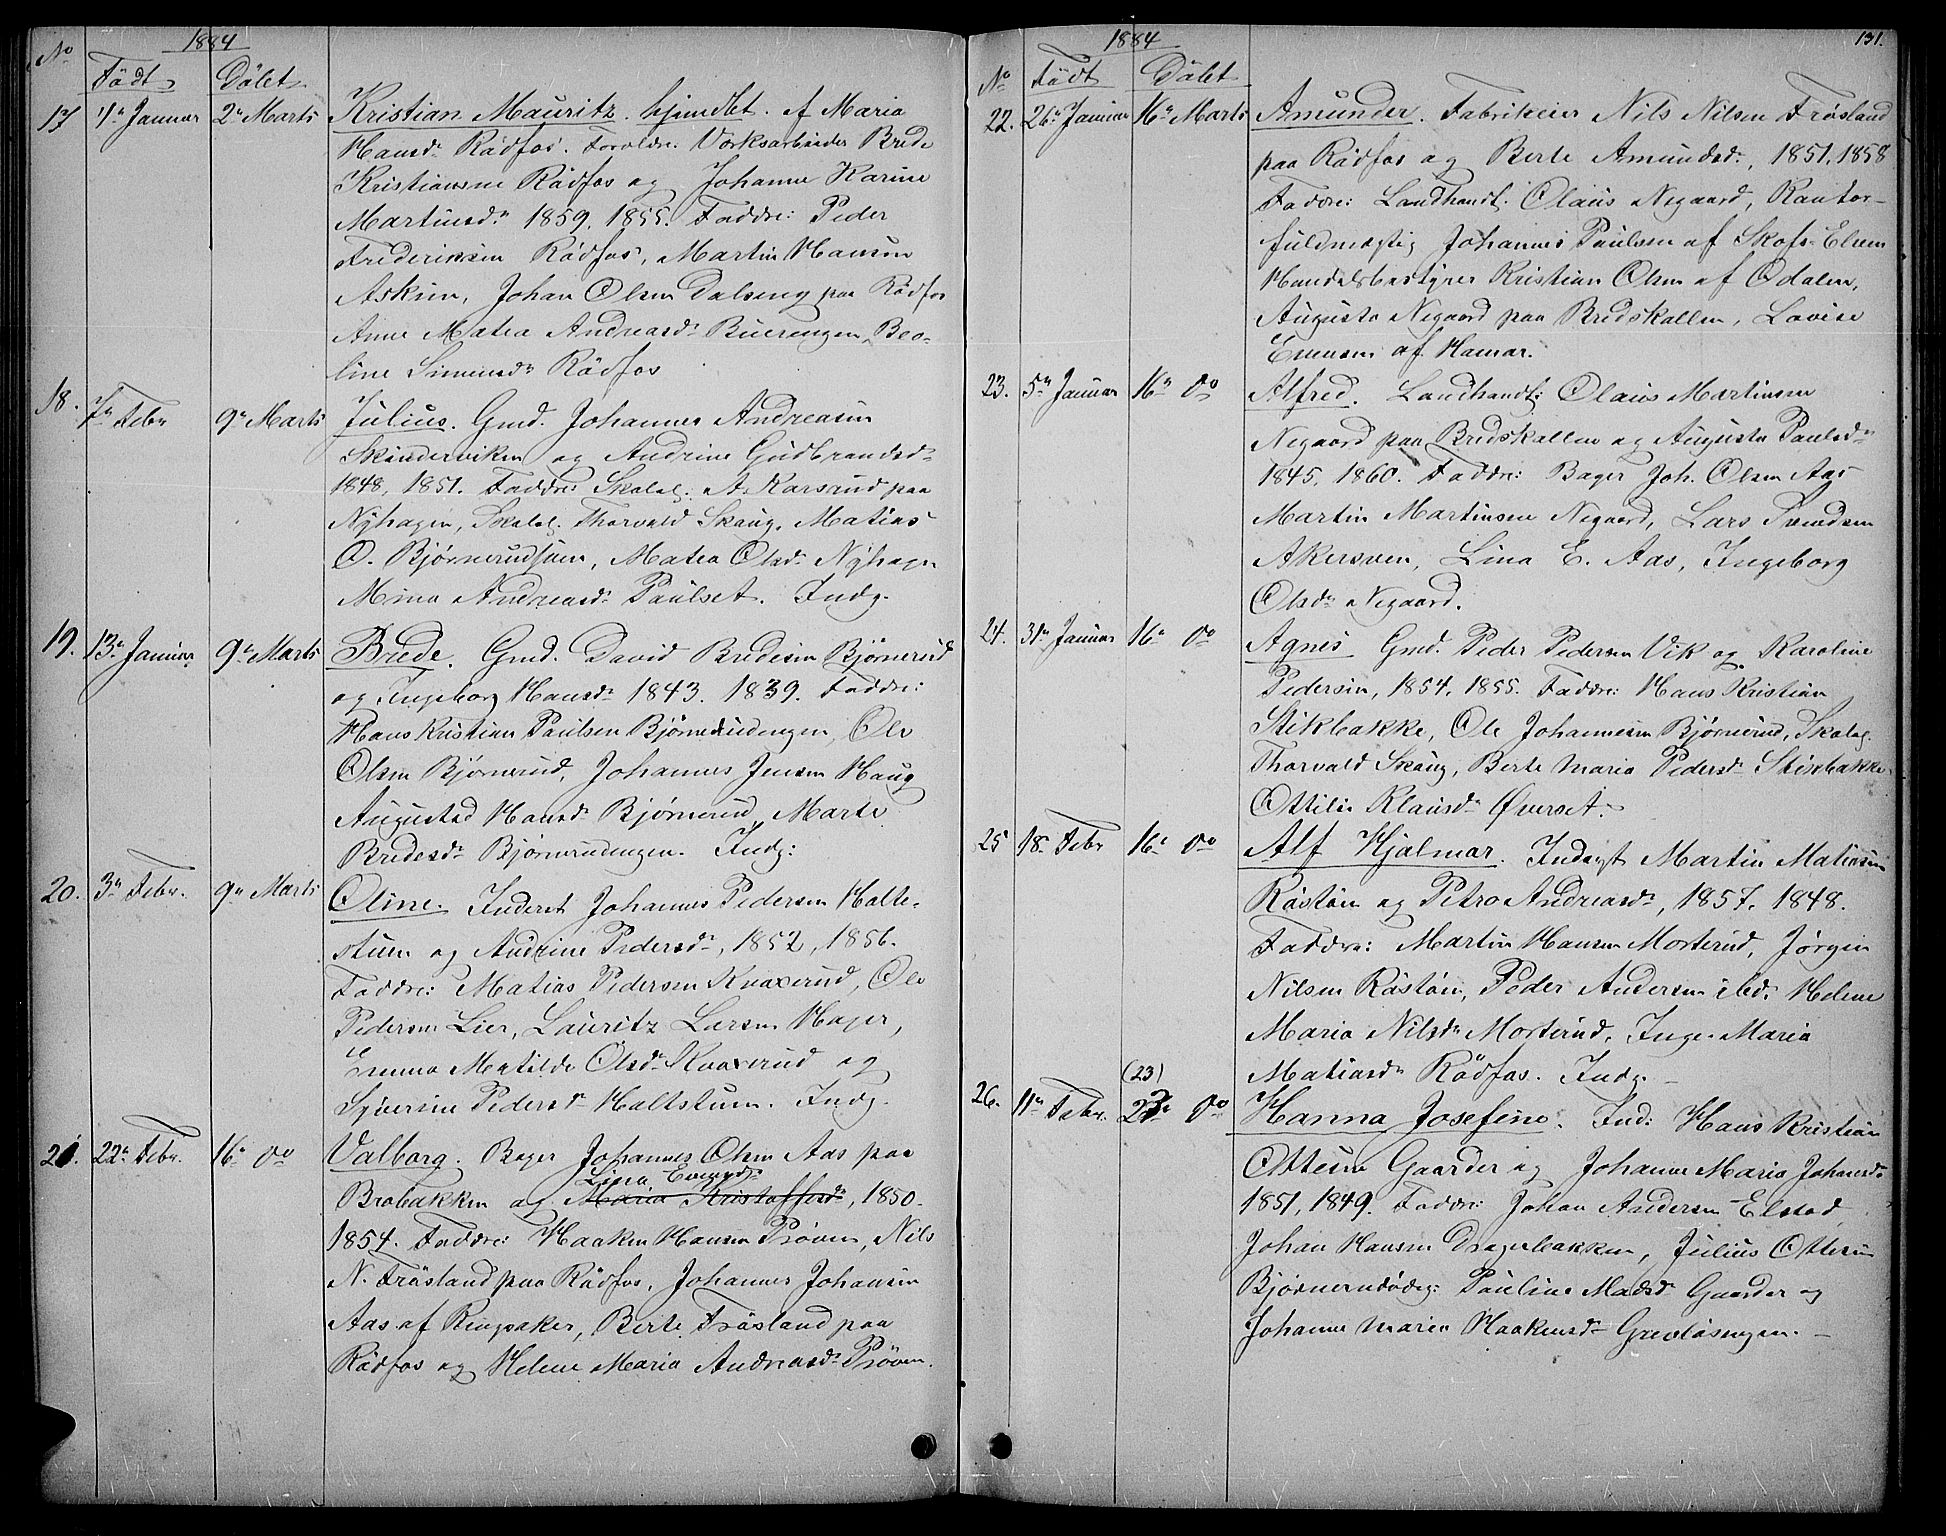 1884
No Født Døbt
17 7de Januar 2den Marts Kristian Mauritz. hjemdbt. af Maria
Hansdr Rådfos. Foreldre: Verksarbeider Brede
Kristiansen Rådfos og Johanne Karine
Martinsdr 1859. 1855. Faddre: Peder
Frederiksen Rådfos, Martin Hansen
Askim, Johan Olsen Dalseng paa Rådfos
Anne Matea Andreasdr Buerengen, Beo-
line Simensdr Rådfos
18. 7de Febr 9de Marts Julius. Gmd. Johannes Andreasen
Skinderviken og Andrine Gudbrandsdr
1848, 1851. Faddre: Skolel. A. Karsrud paa
Nyhagen, Skolel. Thorvald Skaug, Matias
O. Bjørnerud, Matea Olsdr Nyhagen
Mina Andreasdr Paulset. Indg.
19. 13de Januar 9de Marts Brede. Gmd. David Bredesen Bjørnerud
og Ingeborg Hansdr 1843. 1839. Faddre:
Hans Kristian Paulsen Bjørnerudengen, Ole
Olsen Bjørnerud, Johannes Jensen Haug
Augustad Hansdr Bjørnerud, Marte
Bredesdr Bjørnerudengen. Indg:
20. 3de Febr. 9de Marts Oline. Inderst Johannes Pedersen Holte-
stuen og Andrine Pedersdr, 1852, 1856.
Faddre: Matias Pedersen Knaxerud, Ole
Pedersen Lier, Lauritz Larsen Hager,
Emma Matilde Olsdr Knaxerud og
Syverine Pedersdr Holtstuen. Indg.
21. 22de Febr. 16de Do Valborg. Bager Johannes Olsen Aas paa
Lina Evensdr
Brobakken og Maria Kristoffersdr, 1850.
1854. Faddre: Haaken Hansen Prøven, Nils
N. Frøsland paa Rådfos, Johannes Johansen
Aas af Ringsaker, Berte Frøsland paa
Rådfos og Helene Maria Andreasdr Prøven.
1884 131.
No Født Døbt
22. 26de Januar 16de Marts Amunder. Fabrikeier Nils Nilsen Frøsland
paa Rådfos og Berte Amundsdr, 1851, 1858
Faddre: Landhandl. Olaus Negaard, Kontor-
fuldmægtig Johannes Paulsen af Skofs-Elven
Handelsbestyrer Kristian Olsen af Odalen,
Augusta Negaard paa Bredskallen, Lovise
Evensen af Hamar.
23. 5de Januar 16de Do Alfred. Landhandl: Olaus Martinsen
Negaard paa Bredskallen og Augusta Paulsdr
1845, 1860. Faddre: Bager Joh. Olsen Aas
Martin Martinsen Negaard, Lars Svendsen
Akersven, Lina E. Aas, Ingeborg
Olsdr Negaard.
24. 31de Januar 16de Do Agnes Gmd. Peder Pedersen Vik og Karoline
Pedersen, 1854, 1855. Faddre: Hans Kristian
Stikbakke, Ole Johannesen Bjørnerud, Skolel.
Thorvald Skaug, Berte Maria Pedersdr Stikbakke
Ottilie Klausdr Øverset.
25 18de Febr 16de Do Alf Hjalmar. Inderst Martin Matiasen
Råstøen og Petra Andreasdr, 1857, 1848.
Faddre: Martin Hansen Morterud, Jørgen
Nilsen Råstøen, Peder Andersen ibd. Helene
Maria Nilsdr Morterud, Inge Maria
Matiasdr Rådfos. Indg.
(23)
26. 11de Febr. 23de Do Hanna Josefine. Ind: Hans Kristian
Ottesen Gaarder og Johanne Maria Johansdr
1851, 1849. Faddre: Johan Andersen Elstad
Johan Hansen Dragerbakken, Julius Ottesen
Pauline Madsdr Gaarder og
Johanne Maria Haakensdr